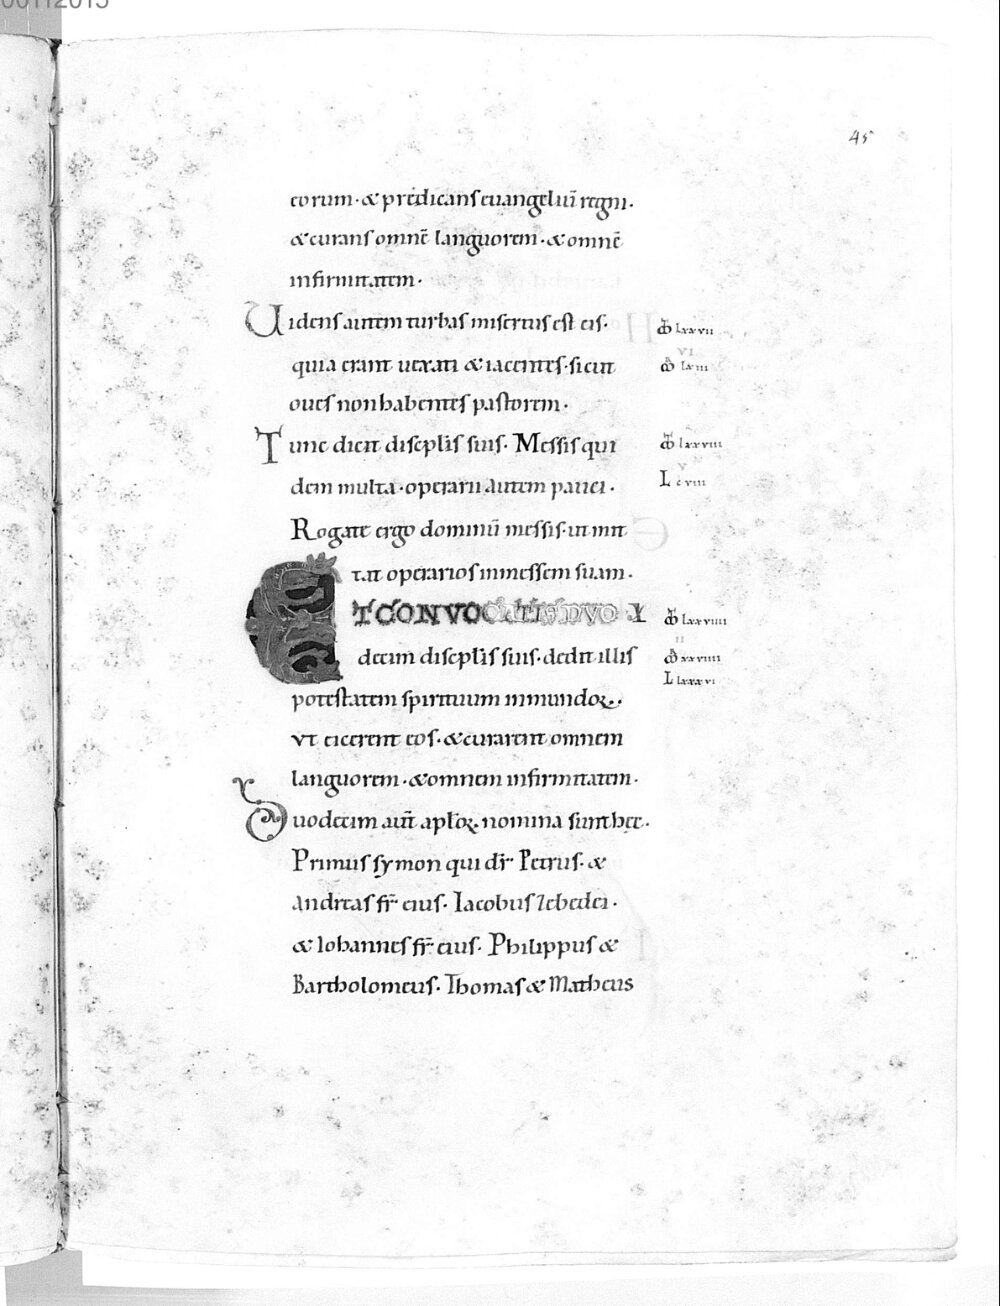 00112015
45
eorum · & prędicans euangeliū regni ·
& curans omnē languorem · & omnē
infirmitatem ·
Uidens autem turbas misertus est eis ·
quia erant uexati & iacentes · sicut
oues non habentes pastorem ·
Tunc dicit discipl̄is suis · Messis qui
dem multa · operarii autem pauci ·
Rogate ergo dominū messis · ut mit
tat operarios in messem suam ·
ET CONVOCATIS DVO X
decim discipl̄is suis · dedit illis
potestatem spirituum inmundoꝝ ·
vt eicerent eos · & curarent omnem
languorem · & omnem infirmitatem ·
Duodecim aūt apl̄oꝝ nomina sunt hęc ·
Primus symon qui dr̄ Petrus · &
andreas fr̄ eius · Iacobus zebedei ·
& Iohannes fr̄ eius · Philippus &
Bartholomeus · Thomas & Matheus
lxxvii
VI
lxiii
lxxviii
V
L c viii
lxxviiii
II
xxviiii
L lxxxvi